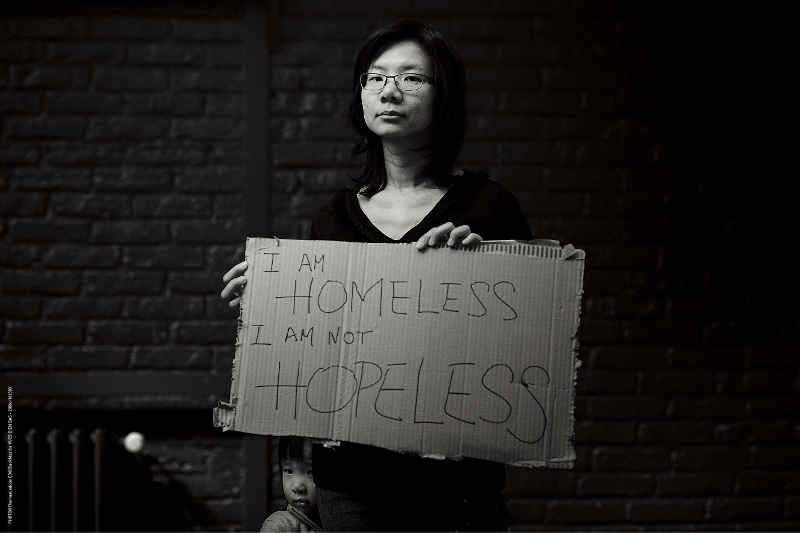 I AM
HOMELESS
I AM NOT
HOPELESS